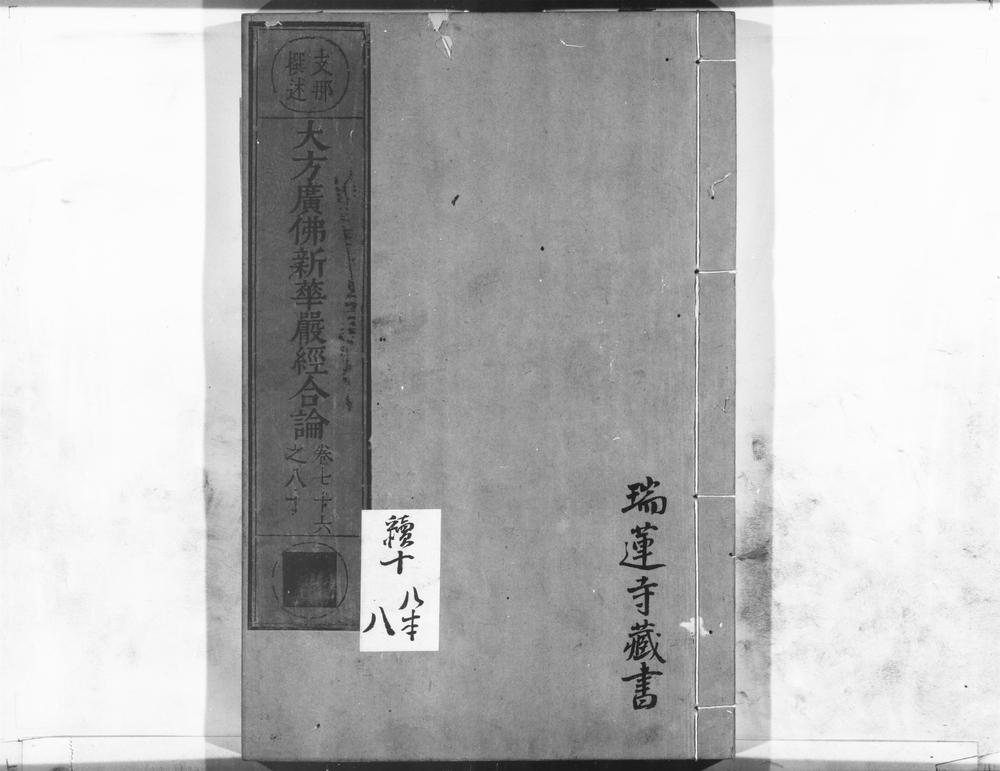 支那
撰述
大方廣佛新華嚴經合論
卷七十六
之八十
續十
八本
八
瑞蓮寺藏書